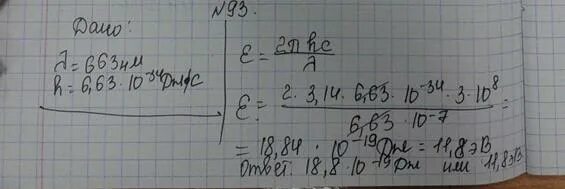 N93.
Дано:
λ = 663нм
h = 6,63 · 10⁻³⁴ Дж/с
ε = 2πhc / λ
ε = 2 · 3,14 · 6,63 · 10⁻³⁴ · 3 · 10⁸ / 6,63 · 10⁻⁷ =
= 18,84 · 10⁻¹⁹ Дж = 11,8 эВ
Ответ: 18,8 · 10⁻¹⁹ Дж или 11,8 эВ